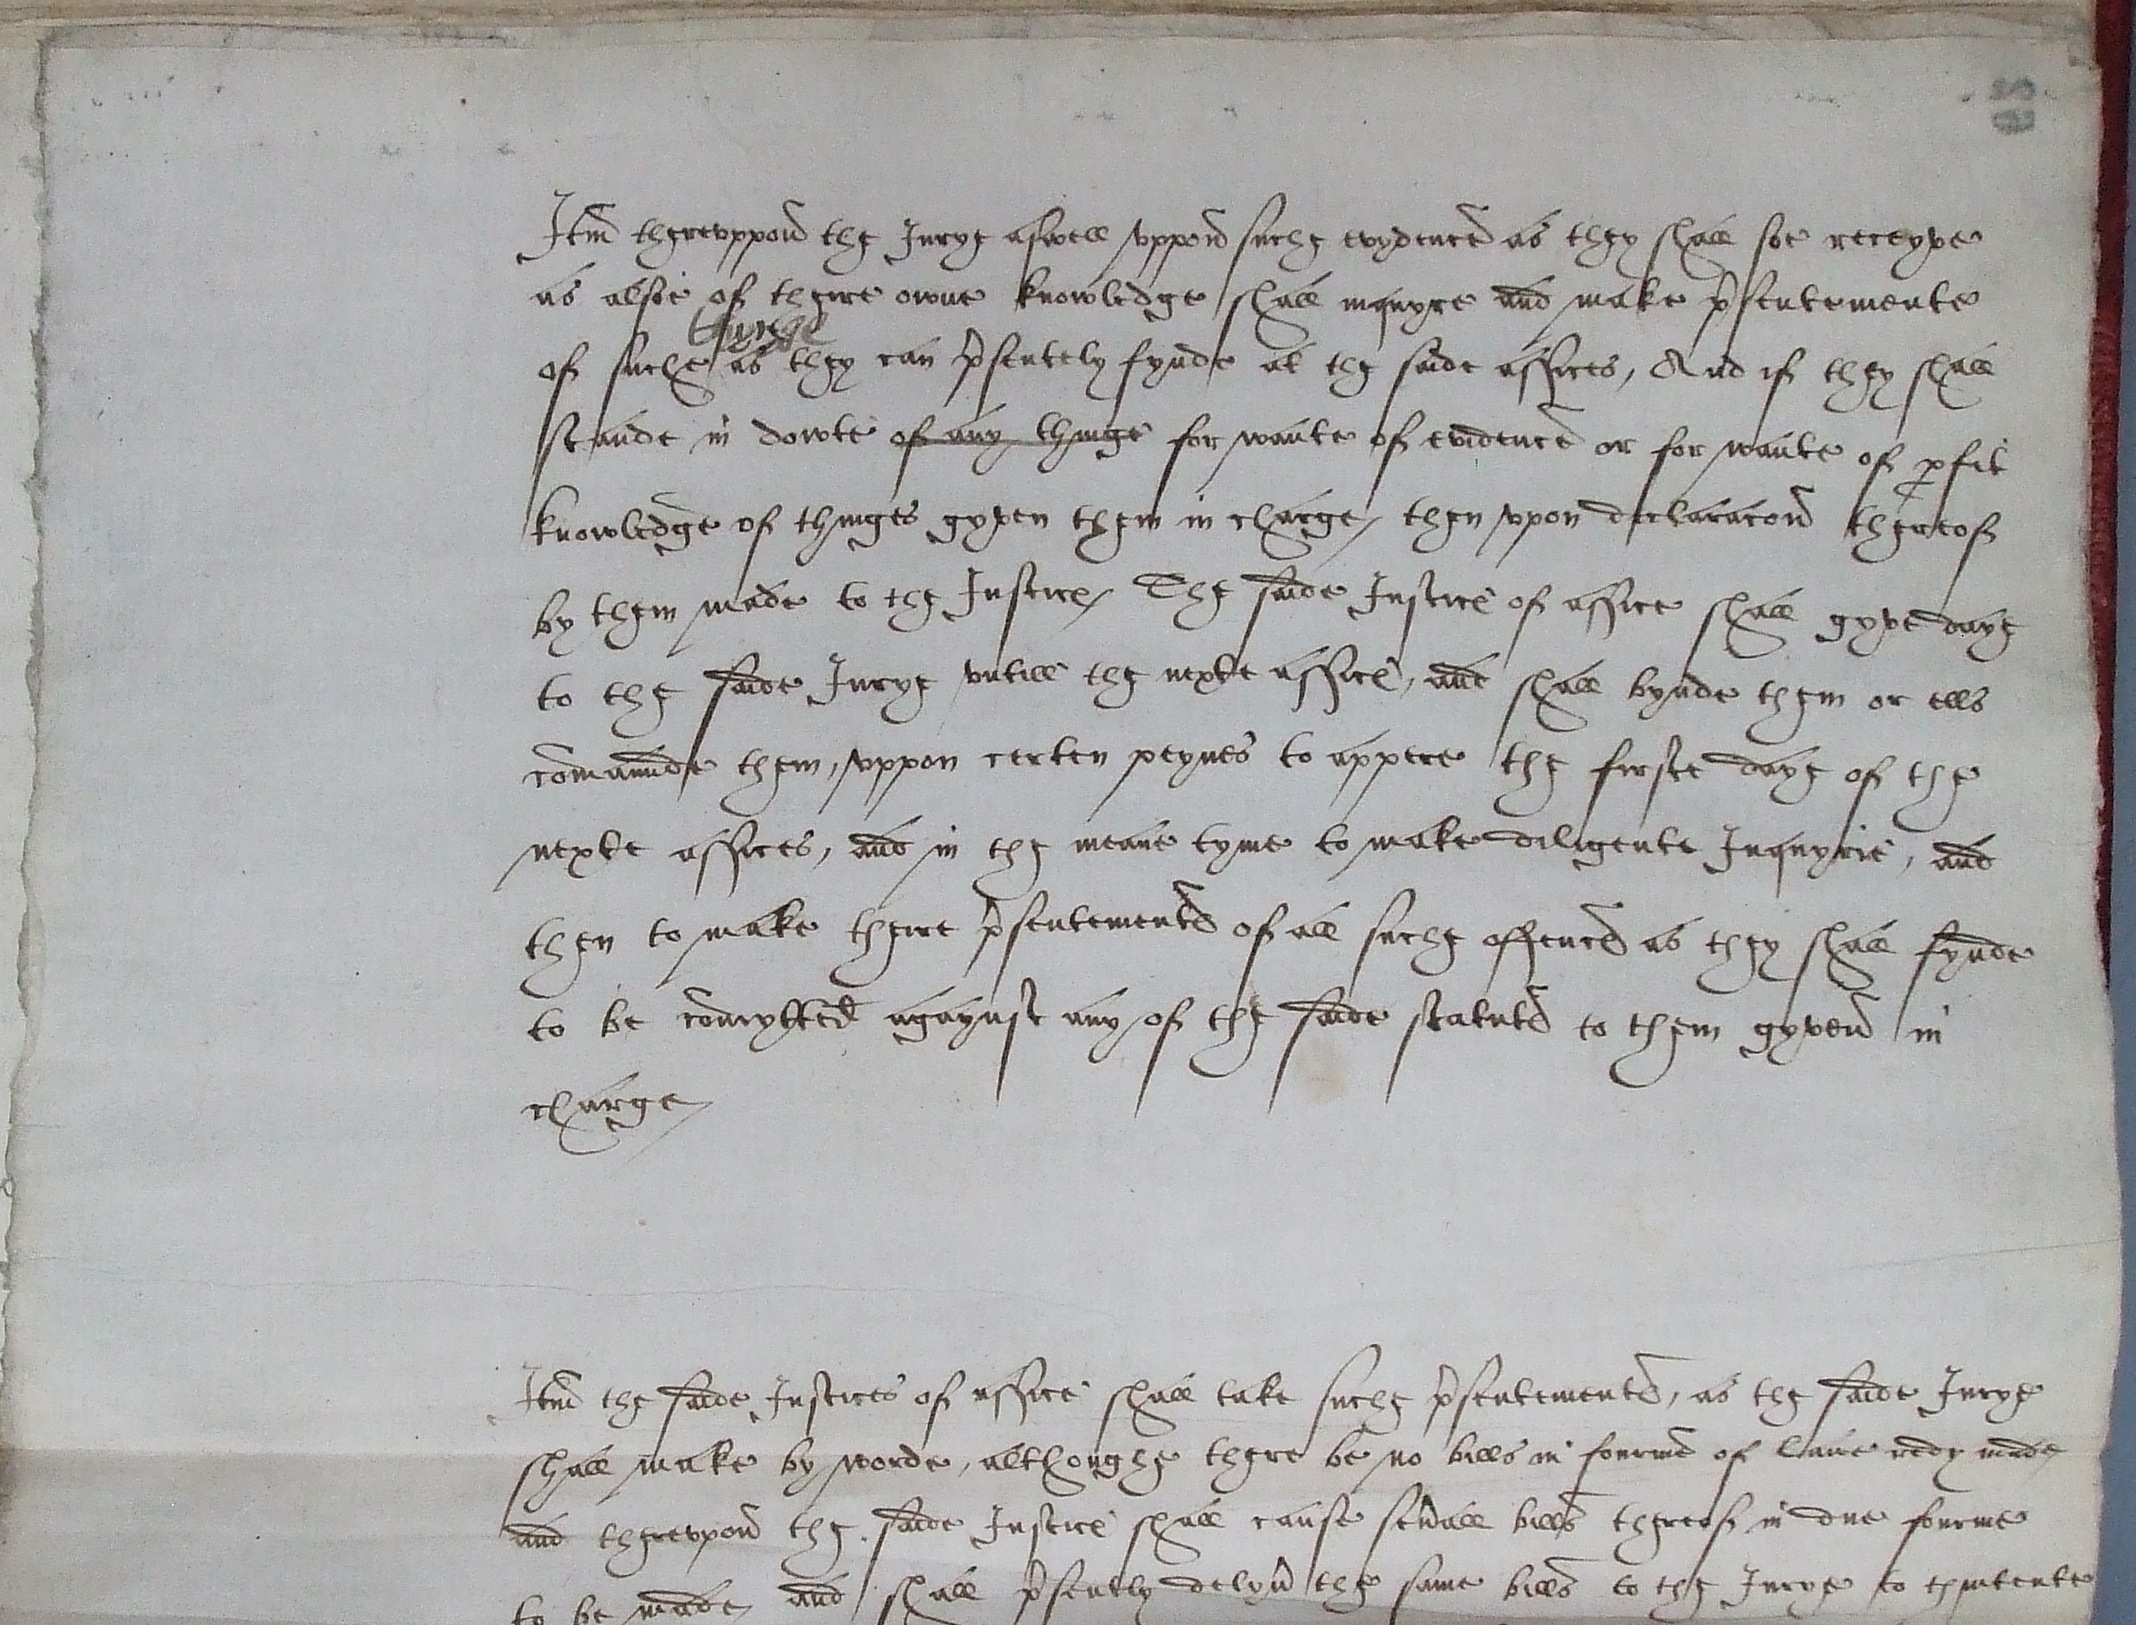 Itm̃ therevppon the Jurye aswell vppon suche evydence as they shall soe receyve
as alsoe of theire owne knowledge shall inquyre and make p̃sentemente
thinge
of suche as they can p̃sentely fynde at the saide assices, And if they shall
stande in dowte of any thinge for wante of evidence or for wante of ꝑfit
knowledge of thinges gyven them in charge, then vpon declaracon thereof
by them made to the Justice, The saide Justice of assice shall gyve daye
to the saide Jurye vntill the nexte assice, and shall bynde them or ells
com̃aunde them, vppon certen peynes to appere the firste daye of the
nexte assices, and in the meane tyme to make diligente Inquyrie, and
then to make theire p̃sentementꝭ of all suche offencꝭ as they shall fynde
to be com̃ytted agaynst any of the saide statutꝭ to them gyven in
charge
Itm̃ the saide Justices of assice shall take suche p̃sentementꝭ, as the saide Jurye
shall make by worde, althoughe there be no bills in fourme of lawe redy made,
and therevpon the saide Justice shall cause seũall bills thereof in due fourme
to be made, and shall p̃sently delyũ the same bills to the Jurye to thintente